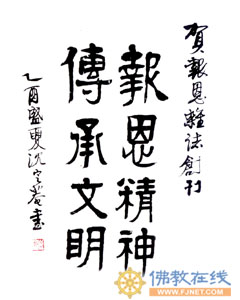 賀報恩雜誌創刊
報恩精神
傳承文明
乙酉盛夏沈定庵書
佛教在线
WWW.FJNET.COM